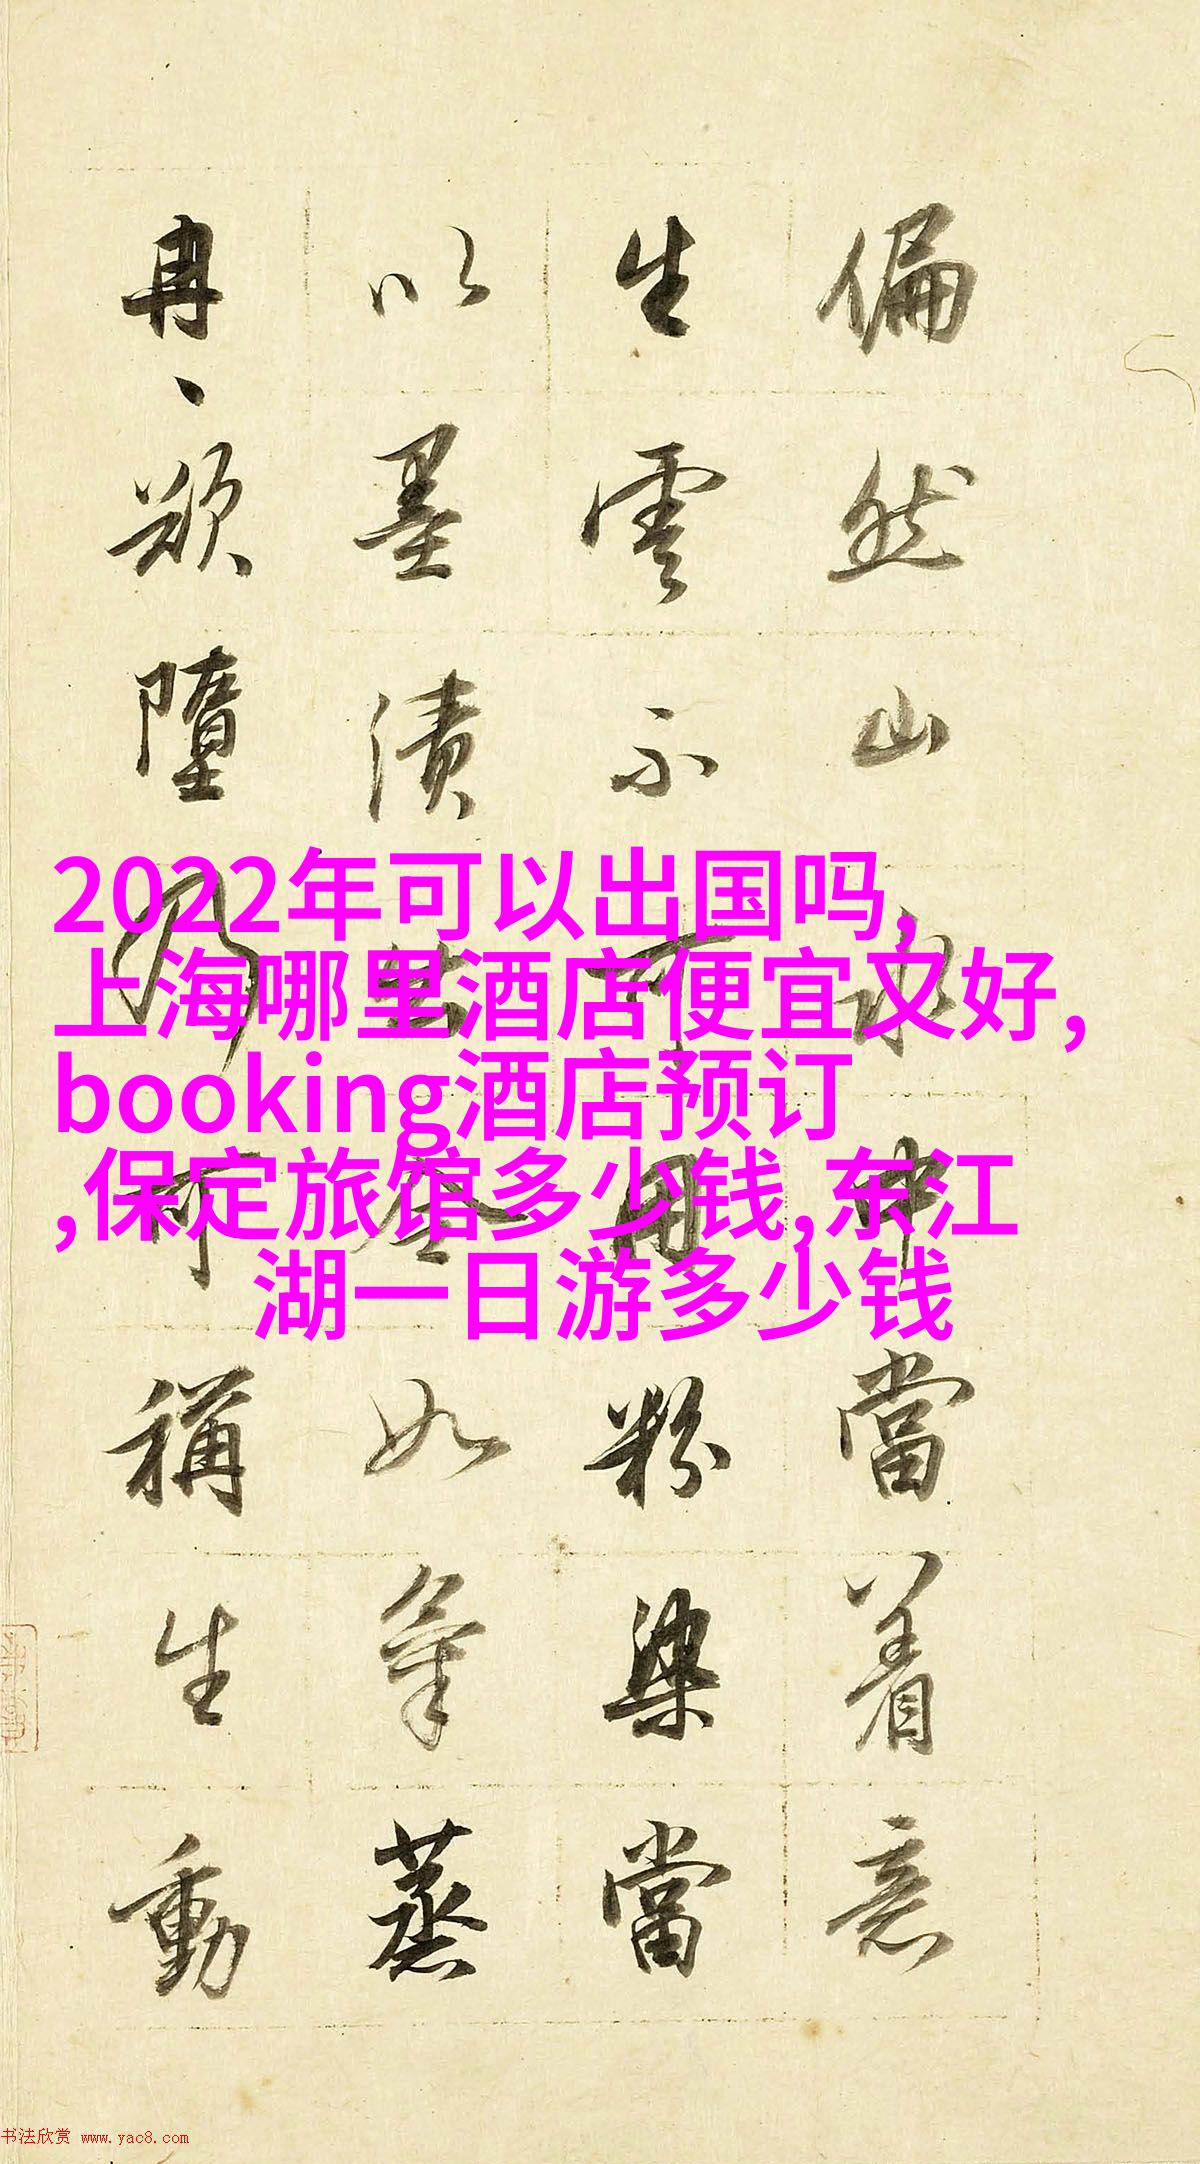 偏然山水中當着意
生雲不可用粉染當
以墨漬出令如氣蒸
冉、欲墮乃可稱生動
2022年可以出国吗,
上海哪里酒店便宜又好,
booking酒店预订
,保定旅馆多少钱,东江
湖一日游多少钱
书法欣赏 www.yac8.com